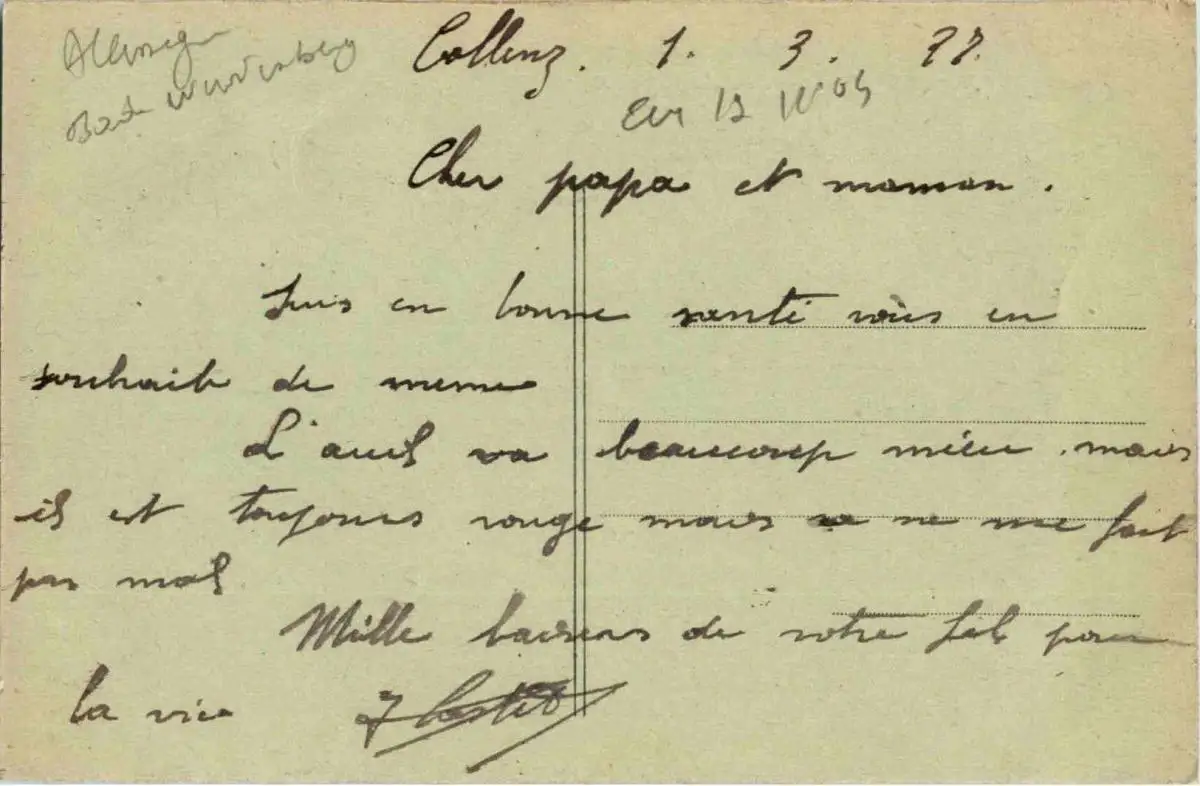 Allemagne
Bade Wurtemberg
Coblenz. 1. 3. 22.
Eur 19
Cher papa et maman.
Suis en bonne santé vous en
souhaite de meme
L'aeuil va beaucoup mieu. mais
il est toujours rouge mais sa ne me fait
pas mal
Mille baisers de votre fils pour
la vie